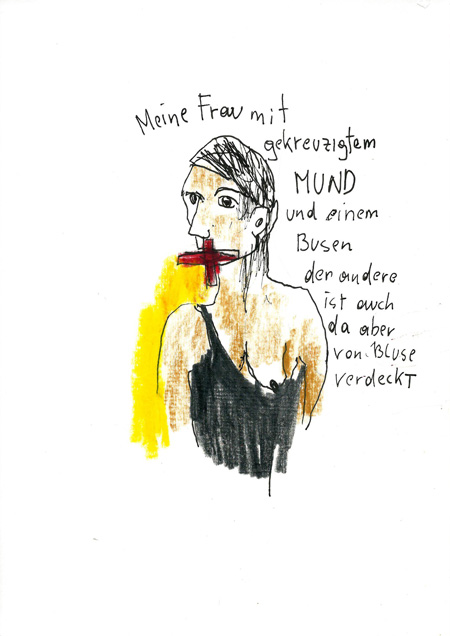 Meine Frau mit
gekreuzigtem
MUND
und einem
Busen
der andere
ist auch
da aber
von Bluse
verdeckt